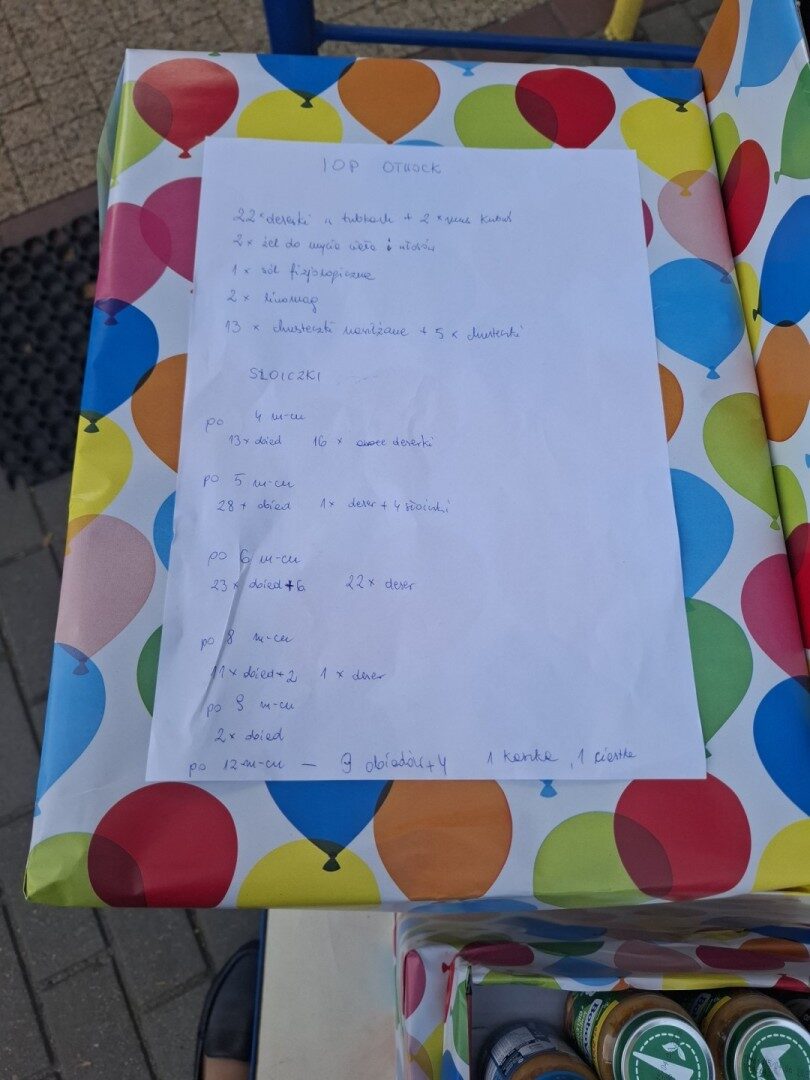 IOP OTWOCK
22 x deserki w tubkach + 2 x mus Kubuś
2 x żel do mycia ciała i włosów
1 x sól fizjologiczna
2 x linomag
13 x chusteczki nawilżane + 5 x chusteczki
SŁOICZKI
po 4 m-cu
13 x obiad 16 x owoce deserki
po 5 m-cu
28 x obiad 1 x deser + 4 słoiczki
po 6 m-cu
23 x obiad + 6 22 x deser
po 8 m-cu
11 x obiad + 2 1 x deser
po 9 m-cu
2 x obiad
po 12 m-cu — 9 obiadów + 4 1 kaszka, 1 ciastka